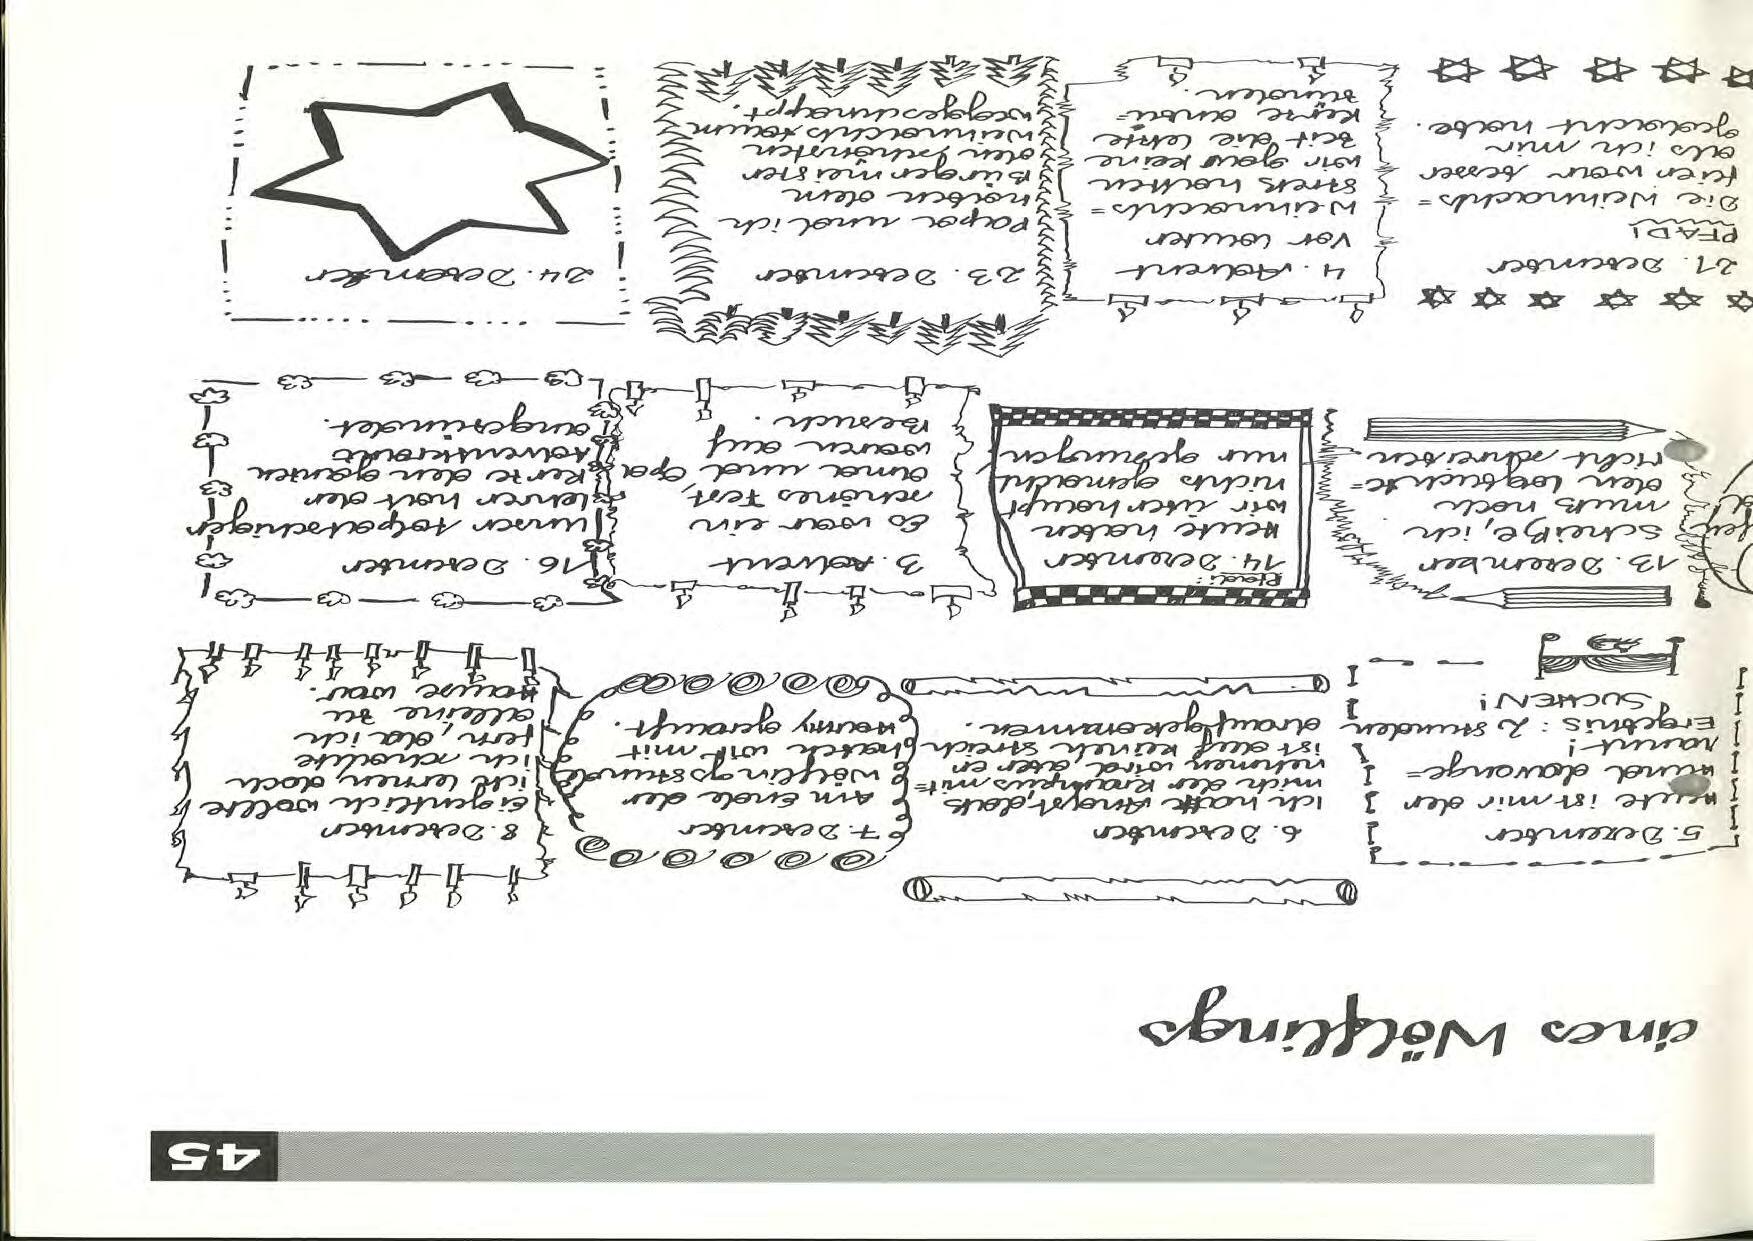 45
eines Wölflings
5. Dezember
Heute ist mir der
Hund davonge=
rannt!
Ergebnis: 2 Stunden
SUCHEN!
6. Dezember
Ich hatte Angst, daß
mich der Krampus mit=
nehmen wird, aber er
ist auf keinen Streich
draufgekommen.
7. Dezember
Am Ende der
Wölflingsstunde
mit
gerauft.
8. Dezember
Eigentlich wollte
ich lernen, doch
ich schaute
fern, da ich
alleine zu
Hause war.
13. Dezember
Scheiße, ich
muß noch
den Logbuchbe=
richt schreiben
Pfadi:
14. Dezember
Heute haben
wir überhaupt
nichts gemacht
nur gesungen
3. Advent
Es war ein
schönes Fest,
Oma und Opa
waren auf
Besuch.
16. Dezember
Unser tolpatschiger
Lehrer hat der
Kerze den ganzen
Adventkranz
angezündet.
21. Dezember
PFADI
Die Weihnachts=
feier war besser
als ich mir
gedacht habe.
4. Advent
Vor lauter
Weihnachts=
streß hatten
wir gar keine
Zeit die letzte
Kerze anzu=
zünden.
23. Dezember
Papa und ich
haben dem
Bürgermeister
den schönsten
Weihnachtsbaum
weggeschnappt.
24. Dezember